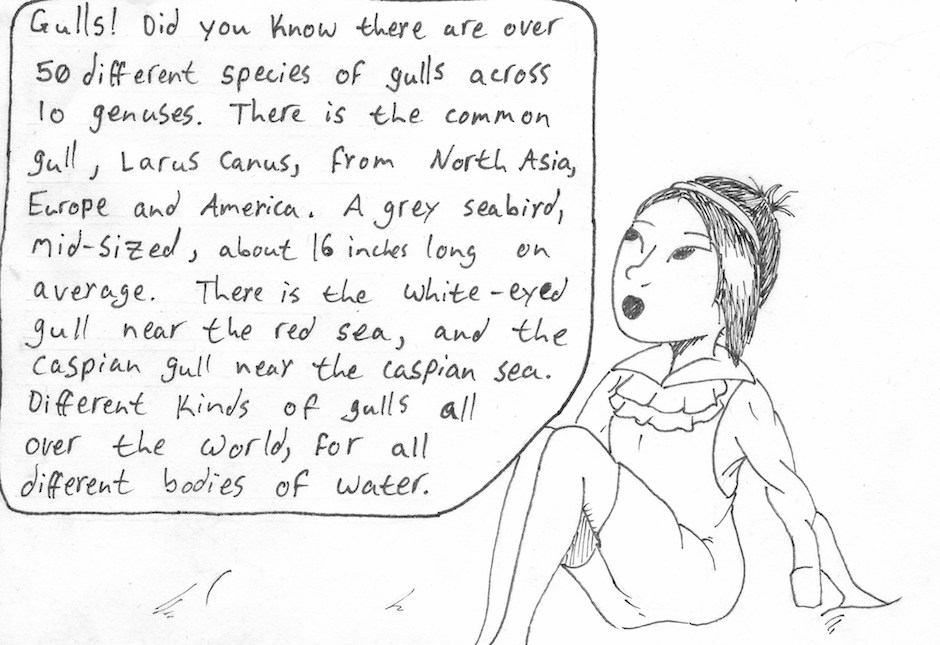 Gulls! Did you know there are over
50 different species of gulls across
10 genuses. There is the common
gull, Larus Canus, from North Asia,
Europe and America. A grey seabird,
mid-sized, about 16 inches long on
average. There is the white-eyed
gull near the red sea, and the
caspian gull near the caspian sea.
Different kinds of gulls all
over the world, for all
different bodies of water.